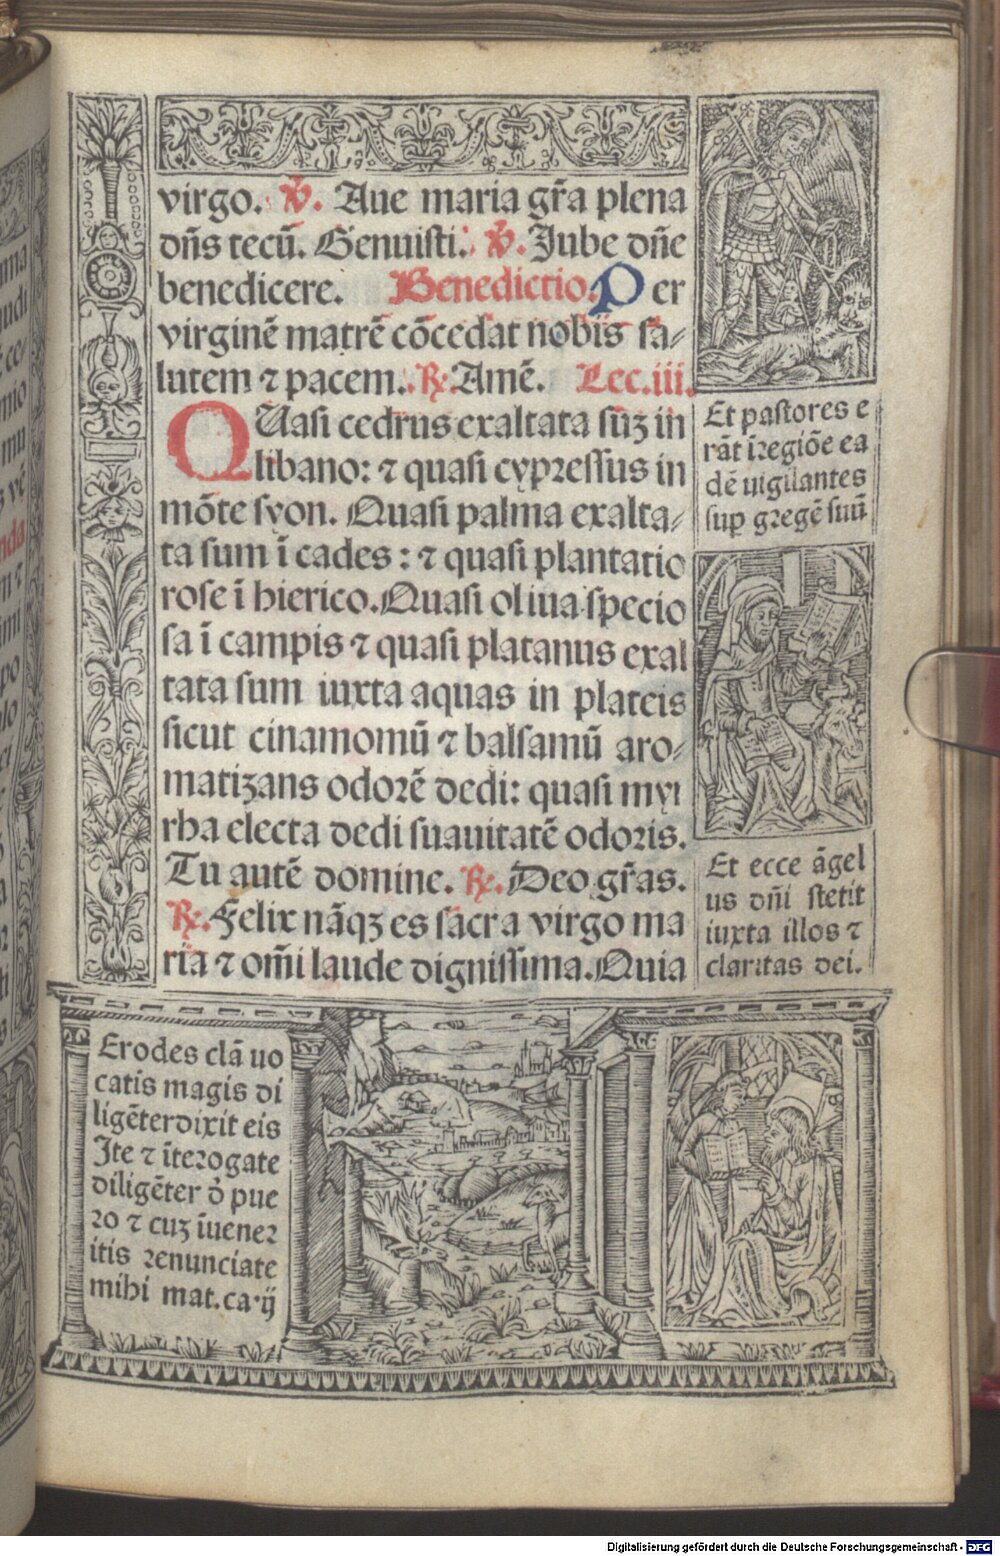 virgo. ℣. Aue maria gr̃a plena
dñs tecũ. Genuisti. ℣. Jube dñe
benedicere. Benedictio. Per
virginẽ matrẽ cõcedat nobis sa⸗
lutem ⁊ pacem. ℟. Amẽ. Lec.iii.
QUasi cedrus exaltata suꝫ in
libano: ⁊ quasi cypressus in
mõte syon. Quasi palma exalta⸗
ta sum ĩ cades: ⁊ quasi plantatio
rose ĩ hierico. Quasi oliua specio
sa ĩ campis ⁊ quasi platanus exal
tata sum iuxta aquas in plateis
sicut cinamomũ ⁊ balsamũ aro⸗
matizans odorẽ dedi: quasi myr
rha electa dedi suauitatẽ odoris.
Tu autẽ domine. ℟. Deo gr̃as.
℟. Felix nãqꝫ es sacra virgo ma
ria ⁊ om̃i laude dignissima. Quia
Et pastores e
rãt ĩ regiõe ea
dẽ uigilantes
sup gregẽ suũ
Et ecce ãgel
us dñi stetit
iuxta illos ⁊
claritas dei.
Erodes clã uo
catis magis di
ligẽter dixit eis
Ite ⁊ ĩterogate
diligẽter d̃ pue
ro ⁊ cuꝫ ĩuener
itis renunciate
mihi mat.ca.ij
Digitalisierung gefördert durch die Deutsche Forschungsgemeinschaft - DFG